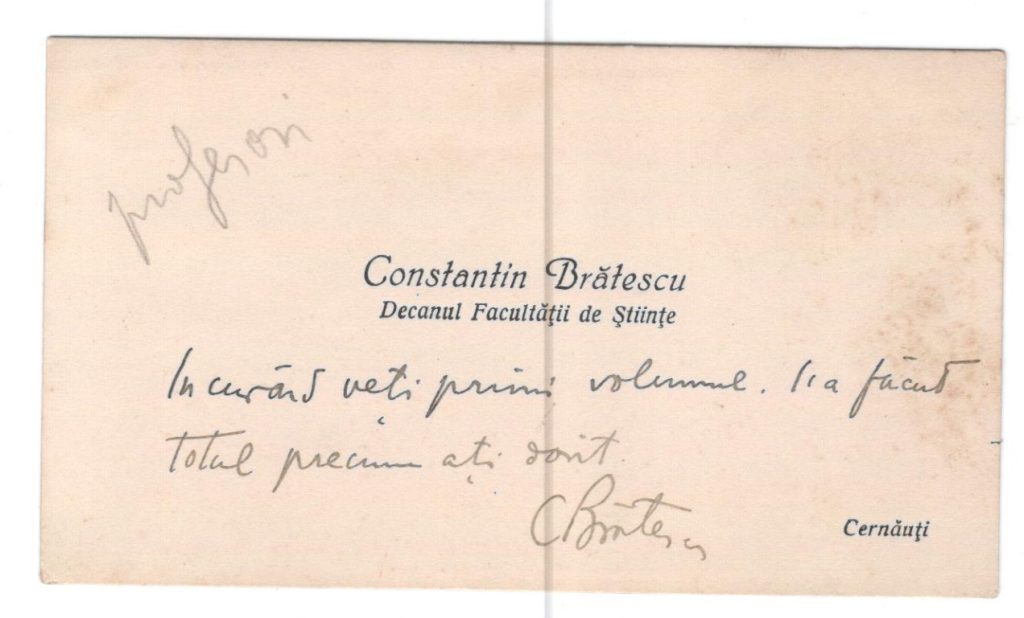 profesori
Constantin Brătescu
Decanul Facultăţii de Ştiinţe
In curând veți primi volumul. S'a făcut
totul precum ați dorit.
CBrătescu
Cernăuţi